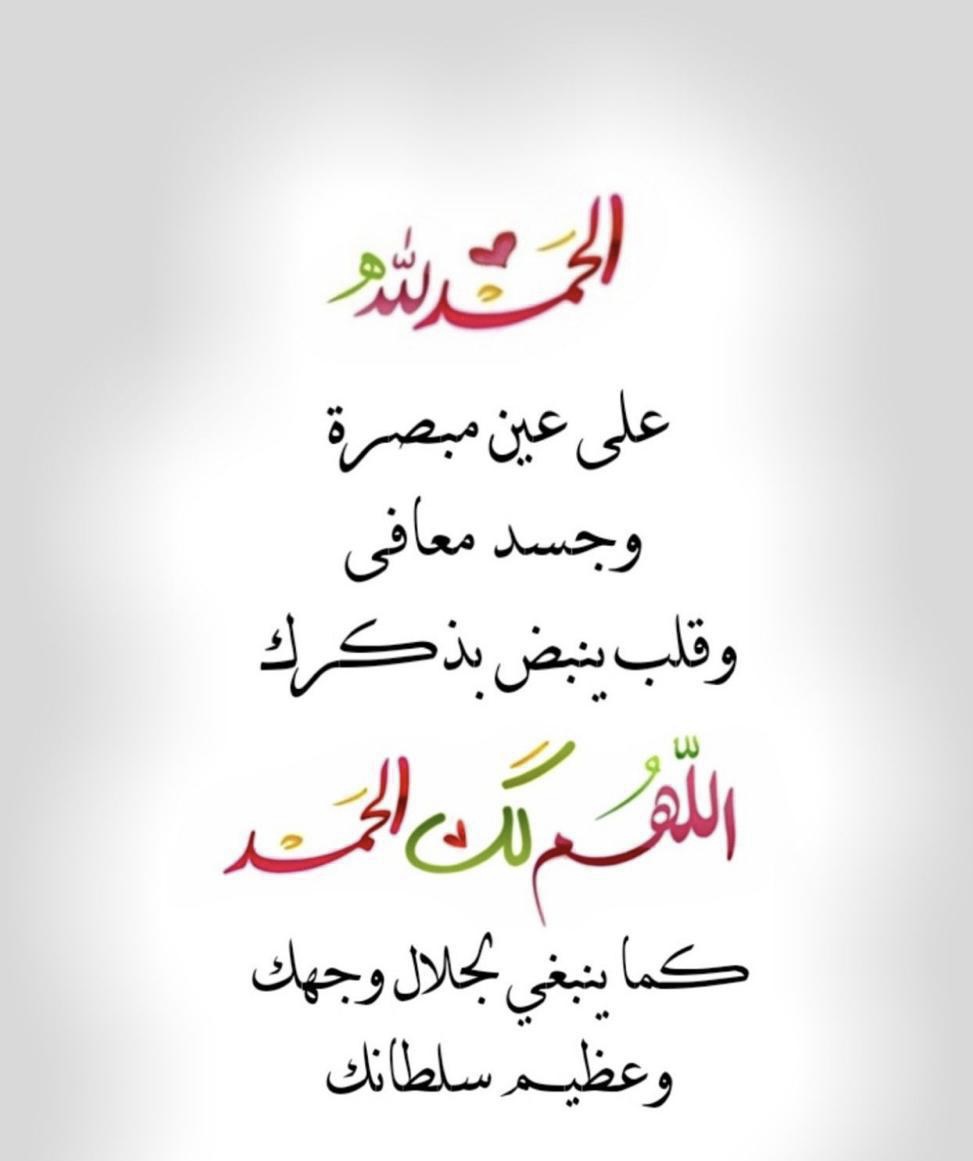 الحمد لله
على عين مبصرة
وجسد معافى
وقلب ينبض بذكرك
اللهم لك الحمد
كما ينبغي لجلال وجهك
وعظيم سلطانك